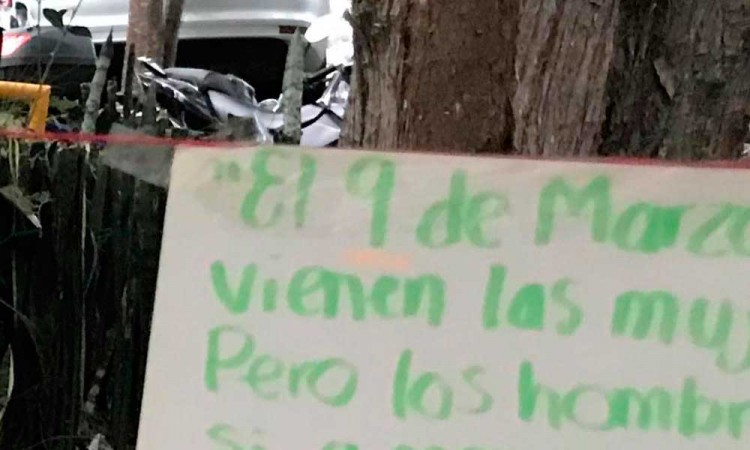 "El 9 de Marzo
vienen las muj
Pero los hombr
si